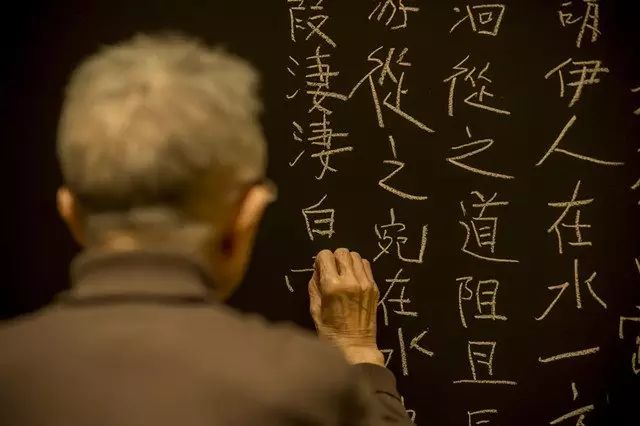 謂伊人在水一
洄從之道阻且
游從之宛在水
葭淒淒白